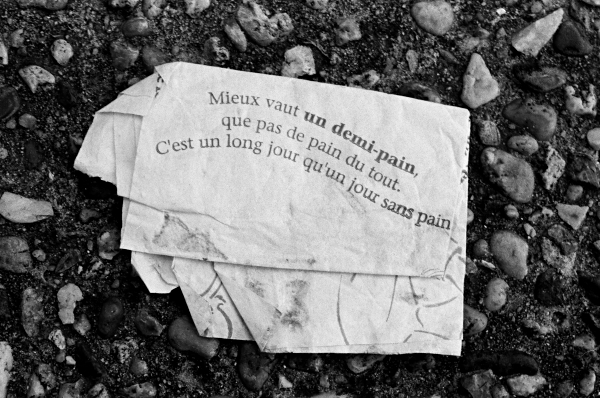 Mieux vaut un demi-pain,
que pas de pain du tout.
C'est un long jour qu'un jour sans pain